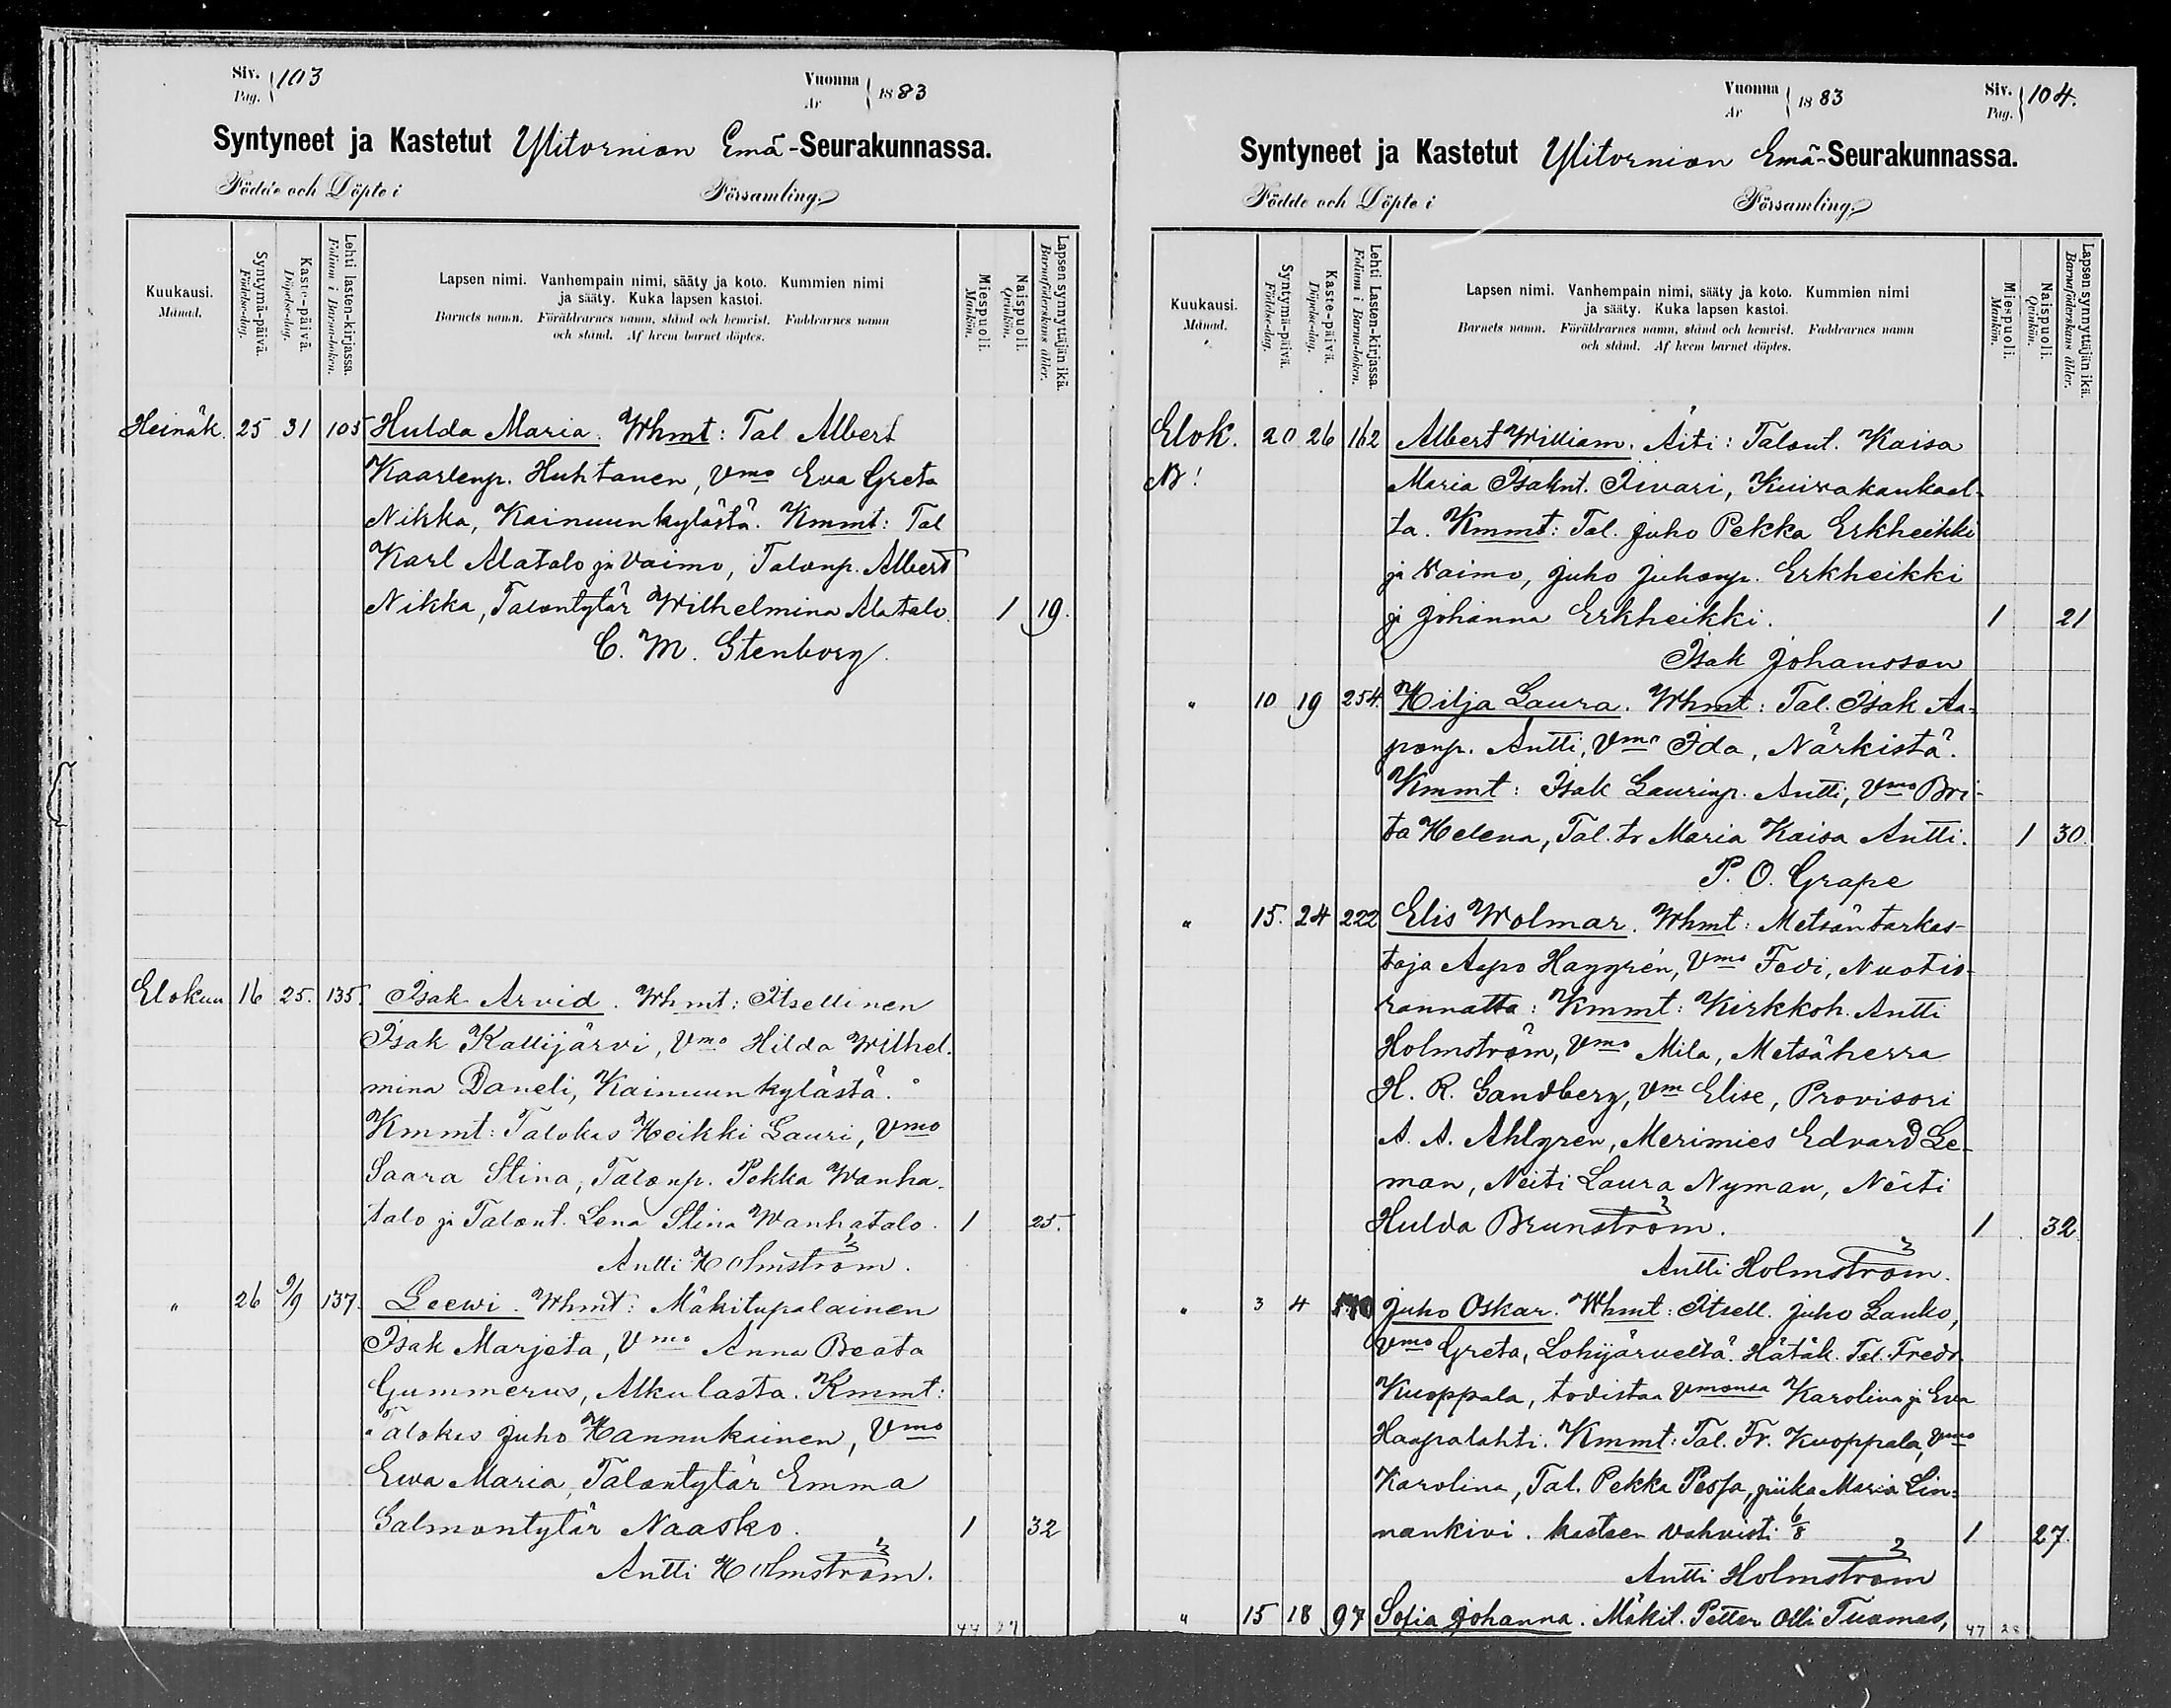 Siv. 103
Pag.
Vuonna 1883
Ar
Syntyneet ja Kastetut Ylitornion Emä-Seurakunnassa.
Födde och Döpte i Församling.
Kuukausi.
Månad.
Syntymä-päivä.
Födelse-dag.
Kaste-päivä.
Döpelse-dag.
Lehti lasten-kirjassa.
Folium i Barna-boken.
Lapsen nimi. Vanhempain nimi, sääty ja koto. Kummien nimi
ja sääty. Kuka lapsen kastoi.
Barnets namn. Föräldrarnes namn, stånd och hemvist. Faddrarnes namn
och stånd. Af hvem barnet döptes.
Miespuoli.
Mankön.
Naispuoli.
Qvinkön.
Lapsen synnyttäjän ikä.
Barnaföderskans ålder.
Heinäk. 25 31 105 Hulda Maria. Whmt: Tal Albert
Kaarlenp. Huhtanen, Vmo Eva Greta
Nikka, Kainuunkylästä. Kmmt: Tal
Karl Alatalo ja Vaimo, Talonp. Albert
Nikka, Talontytär Wilhelmina Alatalo. 1 19.
C. M. Stenborg.
Elokuu 16 25. 135. Isak Arvid. Whmt: Itsellinen
Isak Kallijärvi, Vmo Hilda Wilhel-
mina Daneli, Kainuunkylästä.
Kmmt: Talokas Heikki Lauri, Vmo
Saara Stina, Talonp. Pekka Wanha-
talo ja Talont. Lena Stina Wanhatalo. 1 25.
Antti Holmström.
" 26 9/9 137. Leewi. Whmt: Mäkitupalainen
Isak Marjeta, Vmo Anna Beata
Gummerus, Alkulasta. Kmmt:
Talokas Juho Hannukainen, Vmo
Ewa Maria, Talontytär Emma
Salmontytär Naasko. 1 32
Antti Holmström.
44 27
Vuonna 1883
Ar
Siv. 104.
Pag.
Syntyneet ja Kastetut Ylitornion Emä-Seurakunnassa.
Födde och Döpte i Församling.
Kuukausi.
Månad.
Syntymä-päivä.
Födelse-dag.
Kaste-päivä.
Döpelse-dag.
Lehti Lasten-kirjassa.
Folium i Barna-boken.
Lapsen nimi. Vanhempain nimi, sääty ja koto. Kummien nimi
ja sääty. Kuka lapsen kastoi.
Barnets namn. Föräldrarnes namn, stånd och hemvist. Faddrarnes namn
och stånd. Af hvem barnet döptes.
Miespuoli.
Mankön.
Naispuoli.
Qvinkön.
Lapsen synnyttäjän ikä.
Barnaföderskans ålder.
Elok. 20 26 162 Albert William. Äiti: Talont. Kaisa
Maria Isaknt. Iivari, Kuivakankaal-
ta. Kmmt: Tal. Juho Pekka Erkheikki
ja Vaimo, Juho Juhonp. Erkheikki
ja Johanna Erkheikki. 1 21
Isak Johansson
" 10 19 254. Hilja Laura. Whmt: Tal. Isak Aa-
ponp. Antti, Vmo Ida, Närkistä.
Kmmt: Isak Laurinp. Antti, Vmo Bri-
ta Helena, Tal. tr Maria Kaisa Antti. 1 30.
P. O. Grape
" 15. 24 222 Elis Wolmar. Whmt: Metsäntarkas-
taja Aapo Haggrén, Vmo Fedi, Nuotio-
rannatta: Kmmt: Kirkkoh. Antti
Holmström, Vmo Mila, Metsäherra
H. R. Sandberg, Vm Elise, Provisori
A. A. Ahlgren, Merimies Edvard Le-
man, Neiti Laura Nyman, Neiti
Hulda Brunström. 1 32
Antti Holmström.
" 3 4 Juho Oskar. Whmt: Itsell. Juho Lauko,
Vmo Greta, Lohijärveltä. Hätäk. Tal. Fredr.
Kuoppala, todistaa Vmonsa Karolina ja Eva
Haapalahti. Kmmt: Tal. Fr. Kuoppala, Vmo
Karolina, Tal. Pekka Pessa, piika Maria Lin-
nankivi. kasteen vahvisti 6/8 1 27.
Antti Holmström
" 15 18 97 Sofia Johanna. Mäkit. Petter Olli Tuomas,
47 28